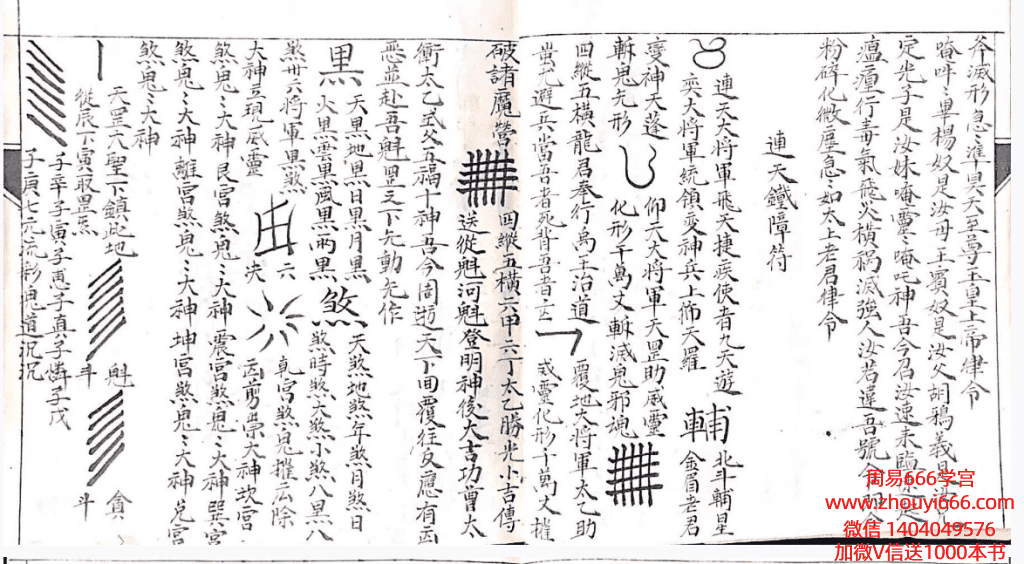 斧滅形急准昊天至尊玉皇上帝律令
唵吽〻畢楊奴是汝母王賓奴是汝父胡鴉義是
定光子是汝妹唵靈〻唵吒神吾今召汝速来臨
瘟㾮行毒氣飛火橫禍滅強人汝若違吾號令
粉碎化微塵急〻如太上老君律令
連天鐵障符
連天大将軍飛天捷疾使者九天遊
奕大将軍統領変神兵上佈天羅
輔
北斗輔星
金冒老君
変神天蓬
斬鬼无形
仰天大将軍天罡助威靈
化形千萬丈斬滅鬼邪魂
四縱五横龍君奉行禹王治道
蚩尤避兵當吾者死背吾者亡
覆地大将軍太乙助
威靈化形千萬丈摧
破諸魔營
四縱五横六甲六丁太乙勝光小吉傳
送從魁河魁登明神後大吉功曹太
衝太乙式父五福十神吾今周遊天下回覆往反應有凶
惡並赴吾魁罡之下无動无作
黒
天黒地黒日黒月黒
火黒雲黒風黒雨黒
煞
天煞地煞年煞月煞日
煞時煞大煞小煞八黒八
煞卅六将軍黒煞
大神豆現威靈
六
夫
乾宮煞鬼摧広除
凶剪祟大神坎宮
煞鬼〻大神艮宮煞鬼〻大神震宮煞鬼〻大神巽宮
煞鬼〻大神離宮煞鬼〻大神坤宮煞鬼〻大神兌宮
煞鬼〻大神
天罡大聖下鎮此地
從辰下寅取罡炁
魁
斗
貪
斗
子辛子寅子惠子真子憐子戊
子庚七元流形
周易666学宫
www.zhouyi666.com
微信 1404049576
加微V信送1000本书